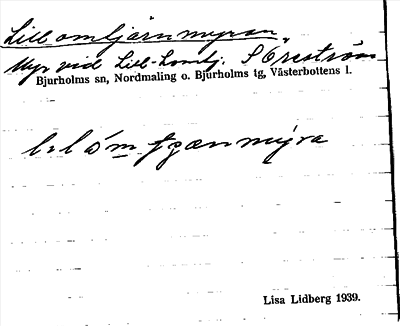 Lillomtjärnmyran
Myr vid Lill-Lomtj. S Örström
Bjurholms sn, Nordmaling o. Bjurholms tg, Västerbottens l.
Lisa Lidberg 1939.